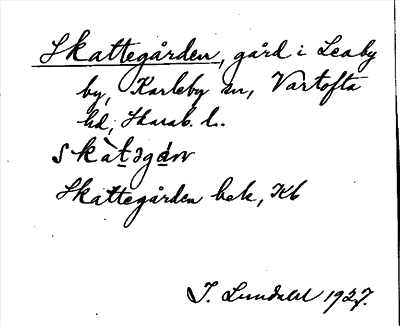 Skattegården, gård i Leaby
by, Karleby sn, Vartofta
hd, Skarab. l.
skàtəgán
Skattegården bek, Kb
J. Lundahl 1927.